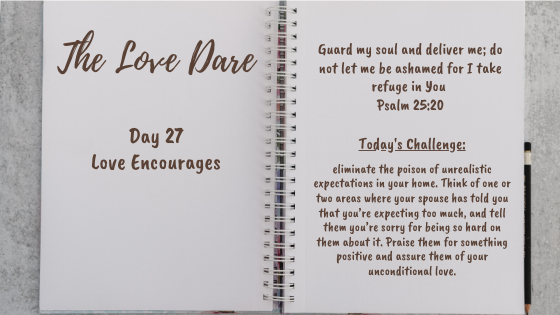 The Love Dare
Day 27
Love Encourages
Guard my soul and deliver me; do
not let me be ashamed for I take
refuge in You
Psalm 25:20
Today's Challenge:
eliminate the poison of unrealistic
expectations in your home. Think of one or
two areas where your spouse has told you
that you're expecting too much, and tell
them you're sorry for being so hard on
them about it. Praise them for something
positive and assure them of your
unconditional love.